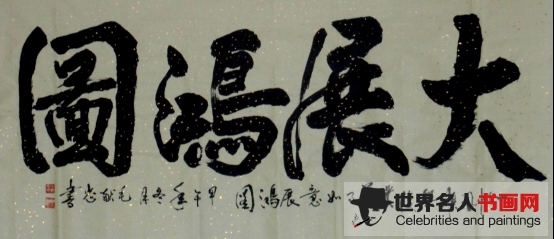 大展鴻圖
如意展鴻圖 甲午年冬月毛書
世界名人书画网
Celebrities and paintings